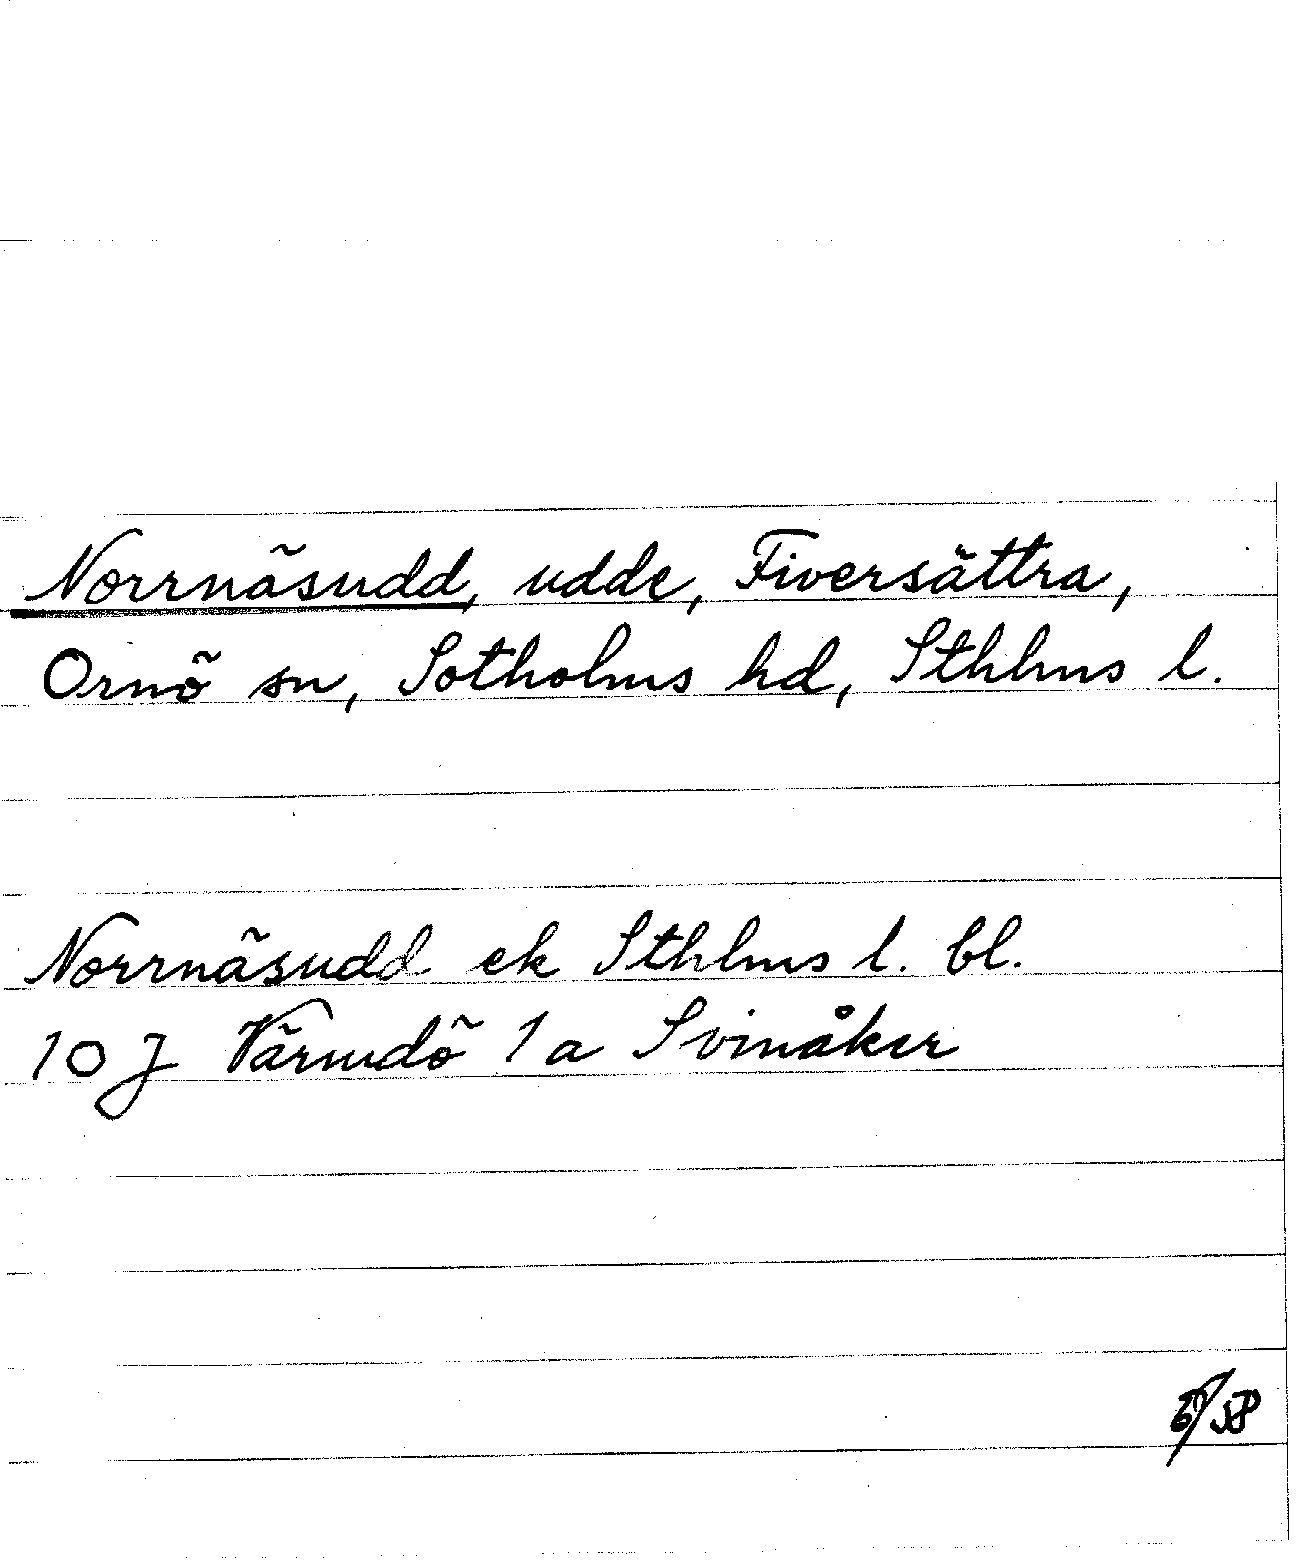 Norrnäsudd, udde, Fiversättra,
Ornö sn, Sotholms hd, Sthlms l.
Norrnäsudd ek Sthlms l. bl.
10 J Värmdö 1a Svinåker